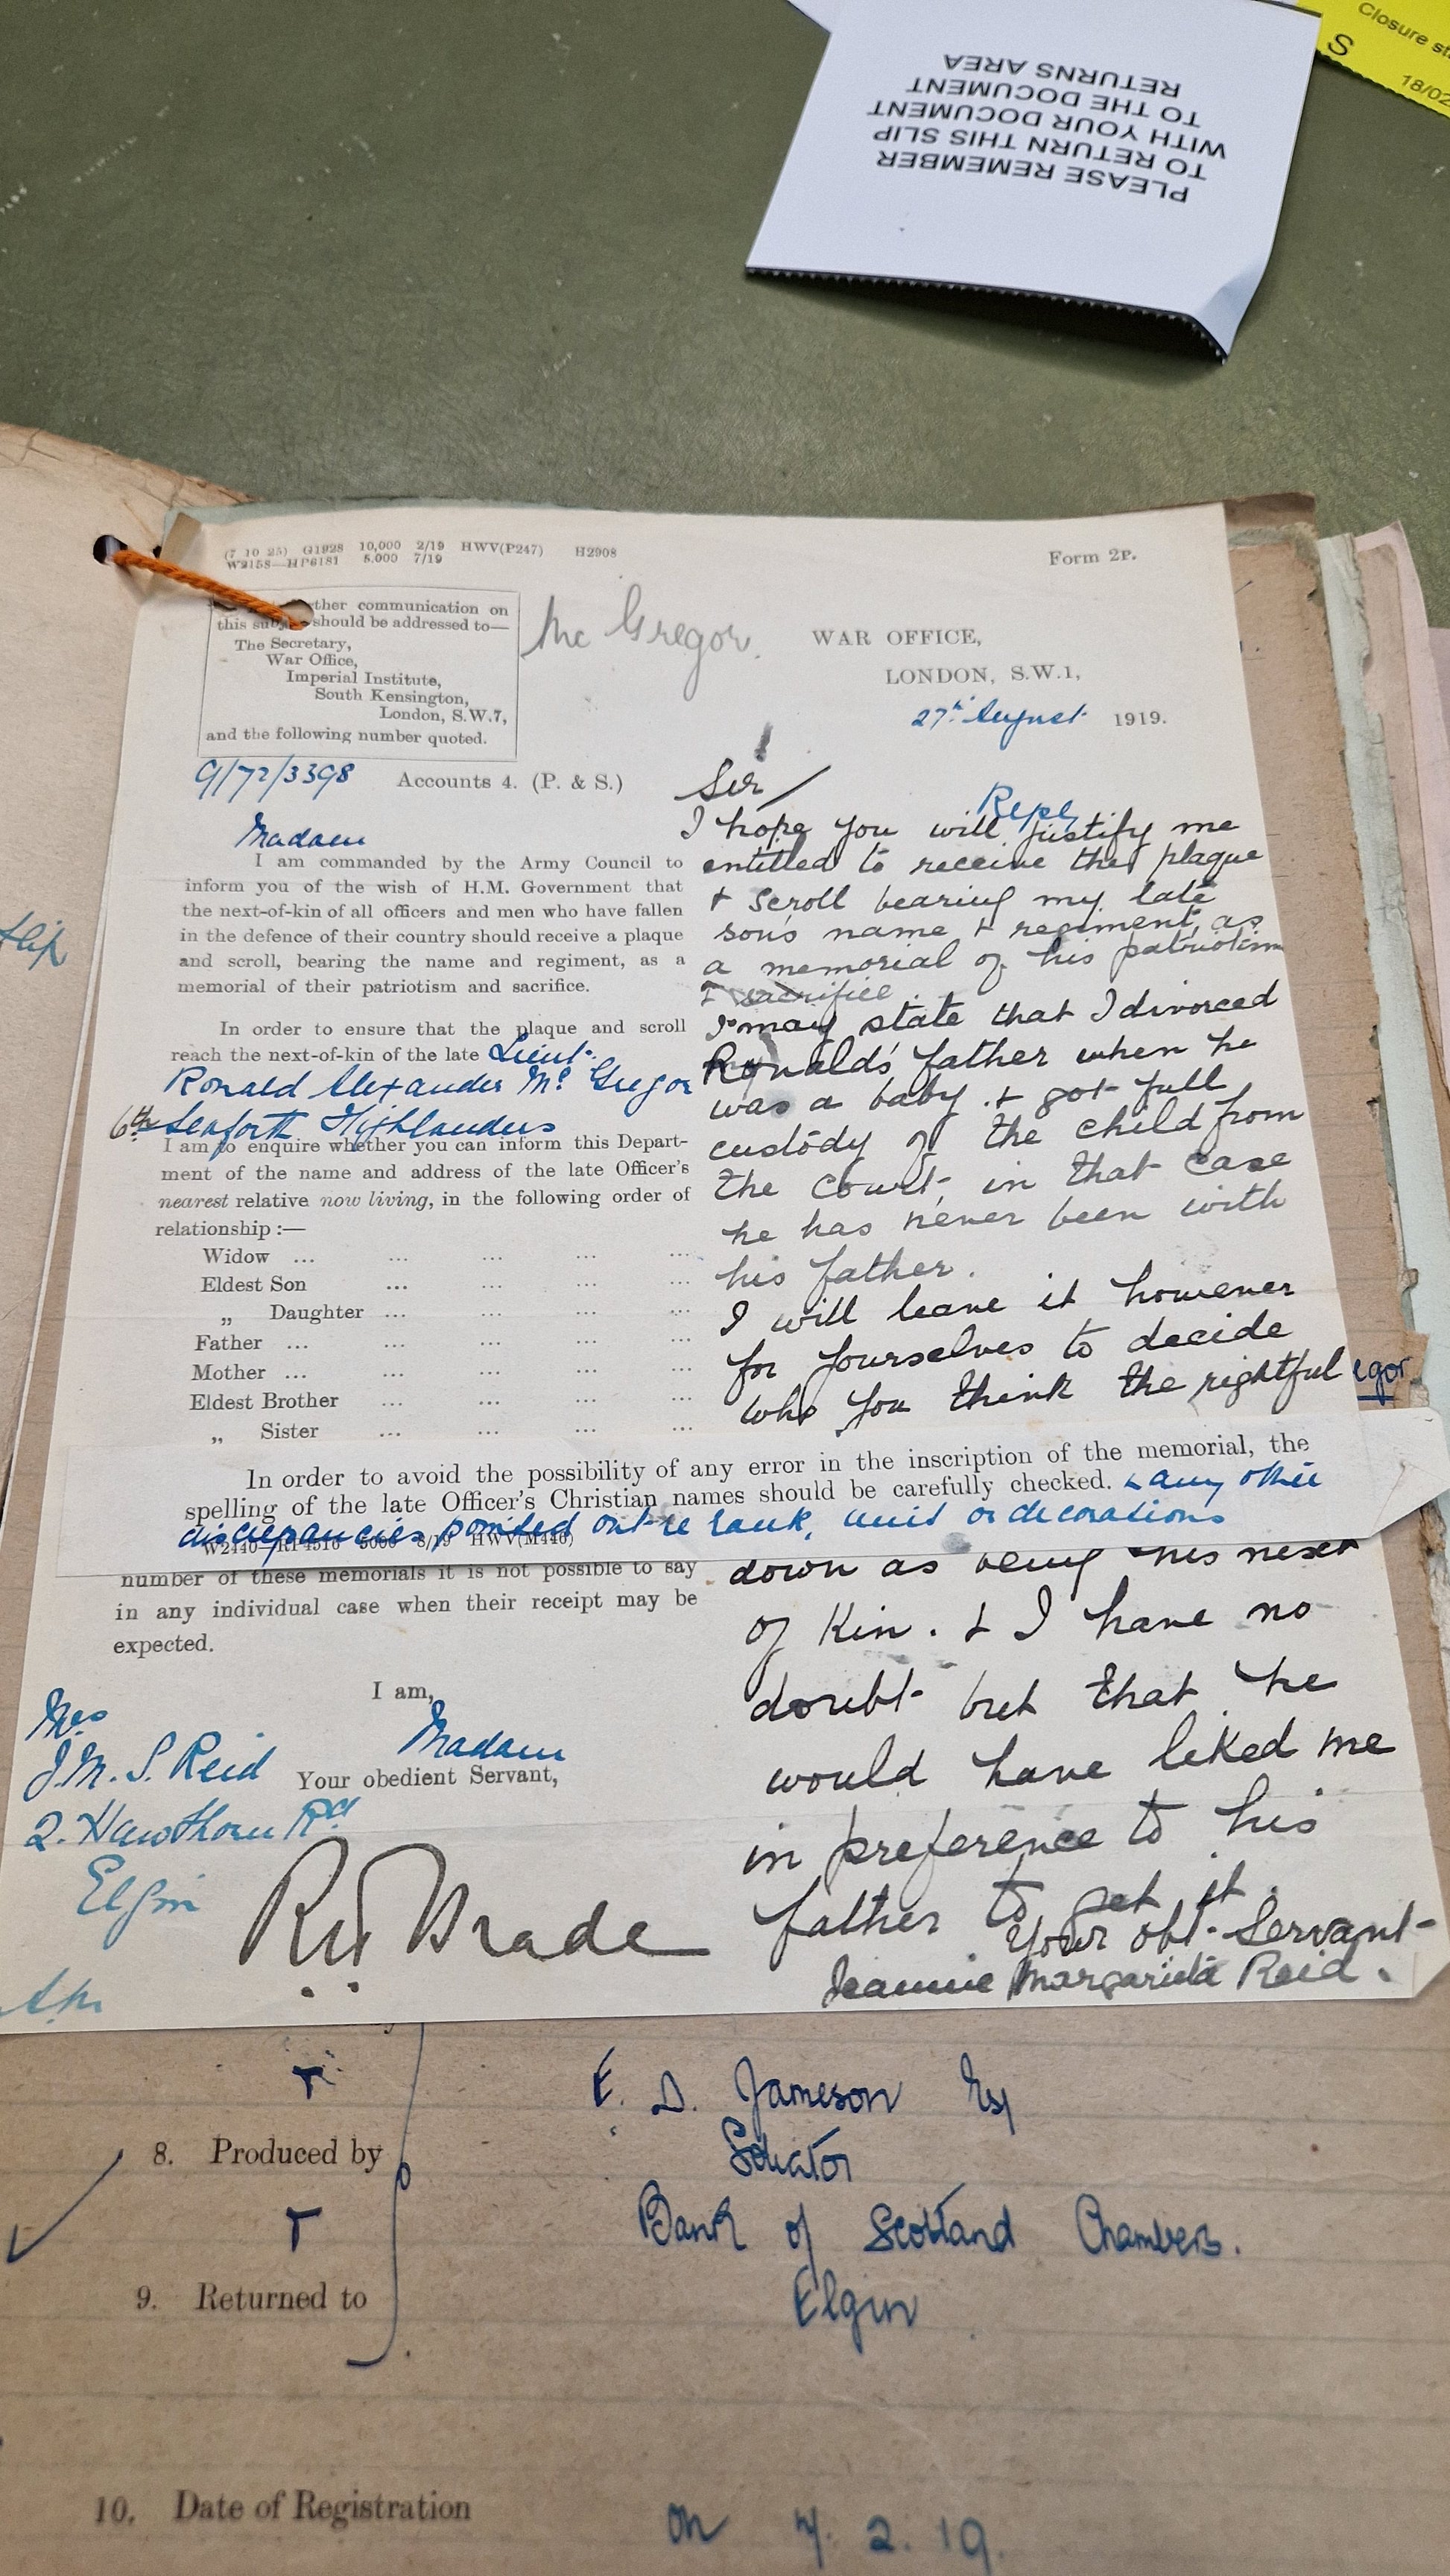 PLEASE REMEMBER
TO RETURN THIS SLIP
WITH YOUR DOCUMENT
TO THE DOCUMENT
RETURNS AREA
Closure
S
18/02
(7 10 25) G1928 10,000 2/19 HWV(P247) H2908
W2158—HP6181 5.000 7/19
Form 2P.
ther communication on
this should be addressed to—
The Secretary,
War Office,
Imperial Institute,
South Kensington,
London, S.W.7,
and the following number quoted.
Mc Gregor.
WAR OFFICE,
LONDON, S.W.1,
27th August 1919.
9/72/3398 Accounts 4. (P. & S.)
Madam
I am commanded by the Army Council to
inform you of the wish of H.M. Government that
the next-of-kin of all officers and men who have fallen
in the defence of their country should receive a plaque
and scroll, bearing the name and regiment, as a
memorial of their patriotism and sacrifice.
In order to ensure that the plaque and scroll
reach the next-of-kin of the late Lieut.
Ronald Alexander Mc Gregor
6th Seaforth Highlanders
I am to enquire whether you can inform this Depart-
ment of the name and address of the late Officer's
nearest relative now living, in the following order of
relationship :—
Widow ... ... ... ... ...
Eldest Son ... ... ... ...
„ Daughter ... ... ... ...
Father ... ... ... ... ...
Mother ... ... ... ... ...
Eldest Brother ... ... ... ...
„ Sister ... ... ... ...
In order to avoid the possibility of any error in the inscription of the memorial, the
spelling of the late Officer's Christian names should be carefully checked. & any other
discrepancies pointed out re rank, unit or decorations
W2440—RP4516 5000 8/19 HWV(M446)
number of these memorials it is not possible to say
in any individual case when their receipt may be
expected.
I am,
Madam
Your obedient Servant,
Mrs
J. M. S. Reid
2. Hawthorn Rd
Elgin
Reply
Sir/
I hope you will justify me
entitled to receive the plaque
& scroll bearing my late
son's name & regiment, as
a memorial of his patriotism
& sacrifice.
I may state that I divorced
Ronald's father when he
was a baby. & got full
custody of the child from
the Court, in that case
he has never been with
his father.
I will leave it however
for yourselves to decide
who you think the rightful
egor
down as being his next
of Kin. & I have no
doubt but that he
would have liked me
in preference to his
father to get it.
Your obt. Servant
Jeannie Margarieta Reid.
E. D. Jameson Esq
8. Produced by
Solicitor
Bank of Scotland Chambers.
9. Returned to
Elgin
10. Date of Registration on 7. 2. 19.